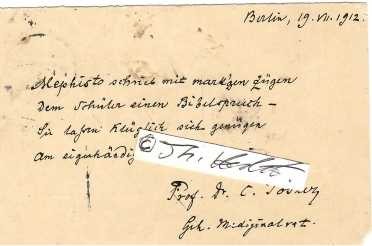 Berlin, 19. VII. 1912.
Mephisto schrieb mit mark'gen Zügen
Dem Schüler einen Bibelspruch –
Sie lassen klüglich sich genügen
Am eigenhändig
©
Prof. Dr. C.
Geh. Medizinalrat.